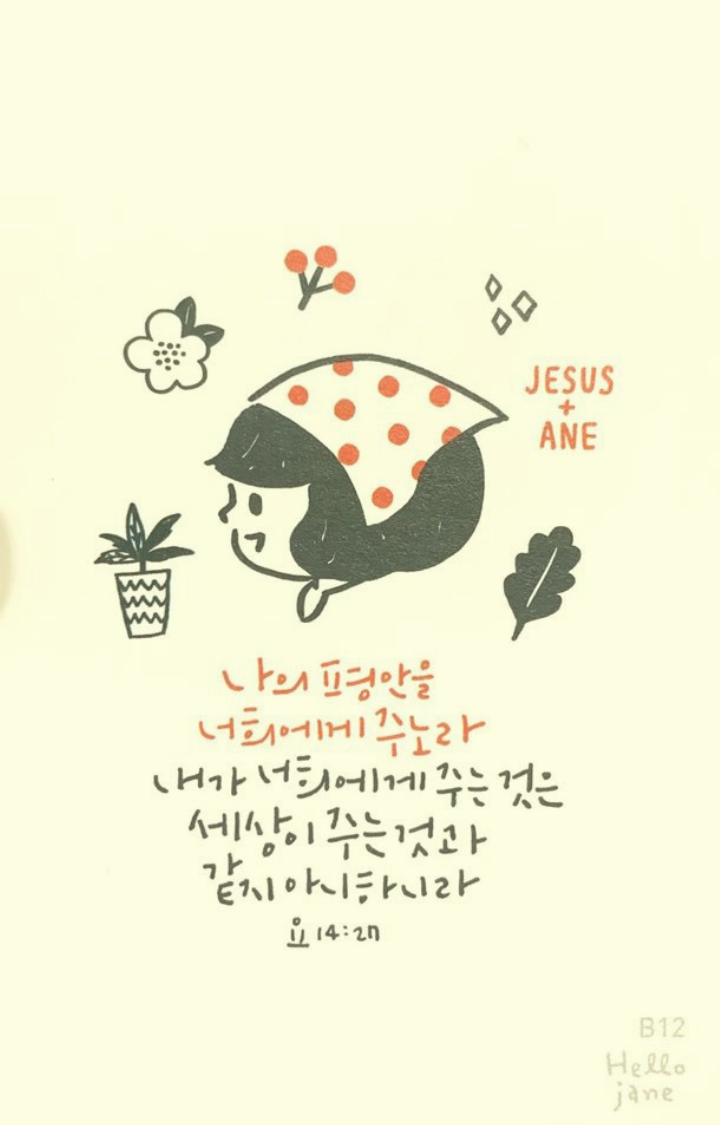 JESUS
+
ANE
나의 평안을
너희에게 주노라
내가 너희에게 주는 것은
세상이 주는 것과
같지 아니하니라
요 14:27
B12
Hello
jane